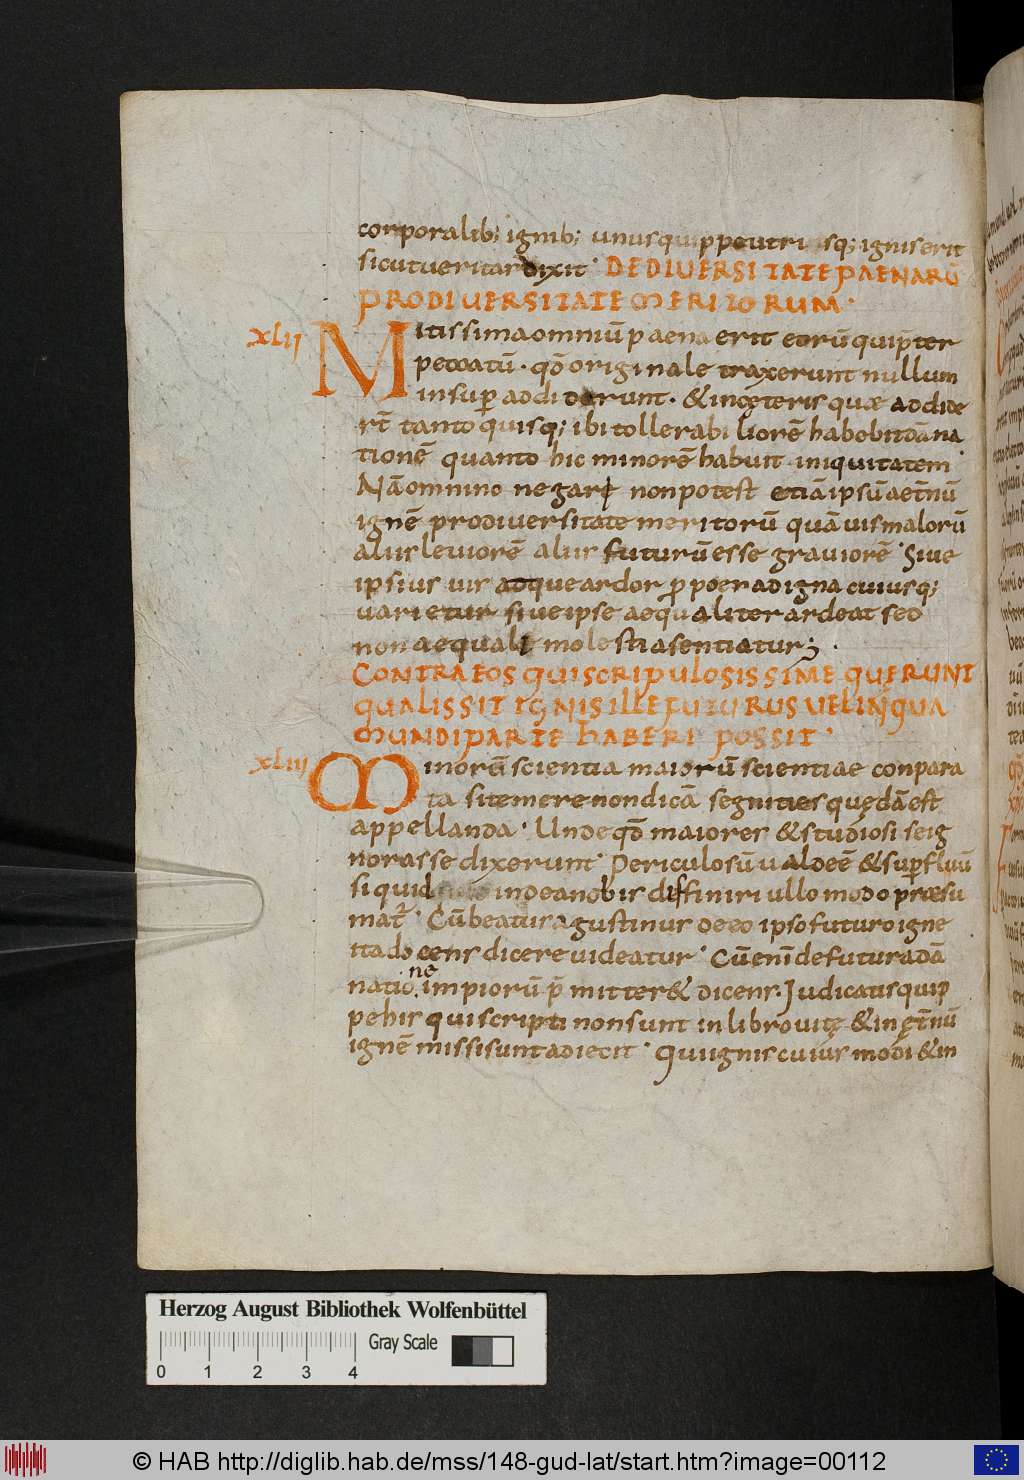 corporalib; ignib; unusquippeutriusq; igniserit
sicutveritas dixit· DE DIVERSITATE PAENARŪ
PRO DIVERSITATE MERITORUM·
XLII Mitissima omniū paena erit eorū qui p̄ter
peccatū· qđ originale traxerunt nullum
insup̄ addiderunt· & in cęteris quae addide
rt̄ tanto quisq; ibi tollerabiliorē habebit dāna
tionē quanto hic minorē habuit iniquitatem·
Nā omnino negari non potest etiā ipsū aet̄nū
ignē pro diversitate meritorū quāvis malorū
aliis leviorē aliis futurū esse graviorē· Sive
ipsius vis adque ardor p̄ poena digna cuiusq;
varietur sive ipse aequaliter ardeat sed
non aequali molestia sentiatur;
CONTRA EOS QUI SCRIPULOSISSIME QUERUNT
QUALIS SIT IGNIS ILLE FUTURUS VEL IN QUA
MUNDI PARTE HABERI POSSIT·
XLIII Minorū scientia maiorū scientiae conpara
ta si temere non dicā segnities quędā est
appellanda· Unde qđ maiores & studiosi seig
norasse dixerunt· Periculosū valdeē & sup̄fluū
si quid inde a nobis diffiniri ullo modo praesu
mat̄· Cū beatus agustinus de eo ipso futuro igne
ita docens dicere videatur· Cū enī de futura dā
natione impiorū p̄mitter& dicens· Judicatis quip
pe his qui scripti non sunt in libro vitę & in ęt̄nū
ignē missi sunt adiecit· Qui ignis cuius modi & in
Herzog August Bibliothek Wolfenbüttel
Gray Scale
0 1 2 3 4
© HAB http://diglib.hab.de/mss/148-gud-lat/start.htm?image=00112